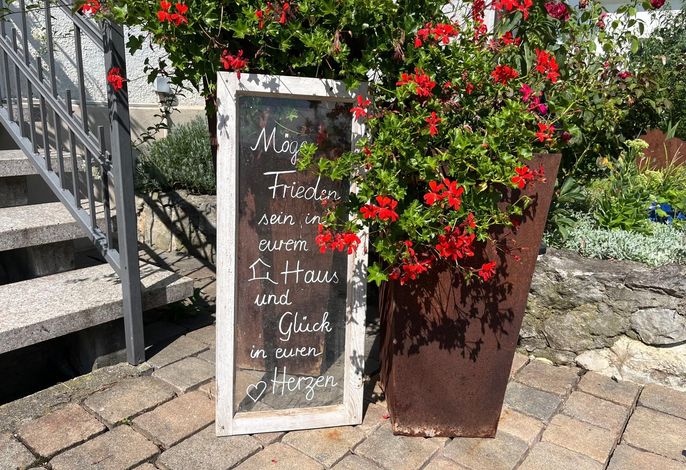 Möge
Frieden
sein in
eurem
Haus
und
Glück
in euren
Herzen